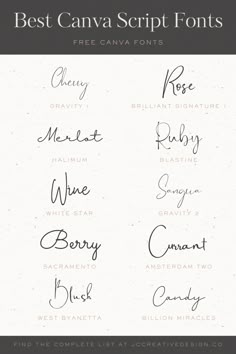 Best Canva Script Fonts
FREE CANVA FONTS
Cherry
Rose
GRAVITY 1
BRILLIANT SIGNATURE 1
Merlot
Ruby
HALIMUM
BLASTINE
Wine
Sangria
WHITE STAR
GRAVITY 2
Berry
Currant
SACRAMENTO
AMSTERDAM TWO
Blush
Candy
WEST BYANETTA
BILLION MIRACLES
FIND THE COMPLETE LIST AT JCCREATIVEDESIGN.CO